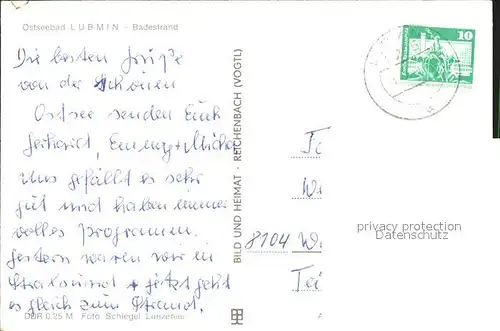 Ostseebad LUBMIN - Badestrand
Die besten Grüße
von der schönen
Ostsee senden Euch
Gerhard, Emmy + Micha
Uns gefällt es sehr
gut und haben immer
volles Programm.
Gestern waren wir in
Stralsund + jetzt geht
es gleich zum Strand.
DDR 0,25 M Foto Schlegel Lunzenau
BILD UND HEIMAT · REICHENBACH (VOGTL)
10
8104 W
privacy protection
Datenschutz